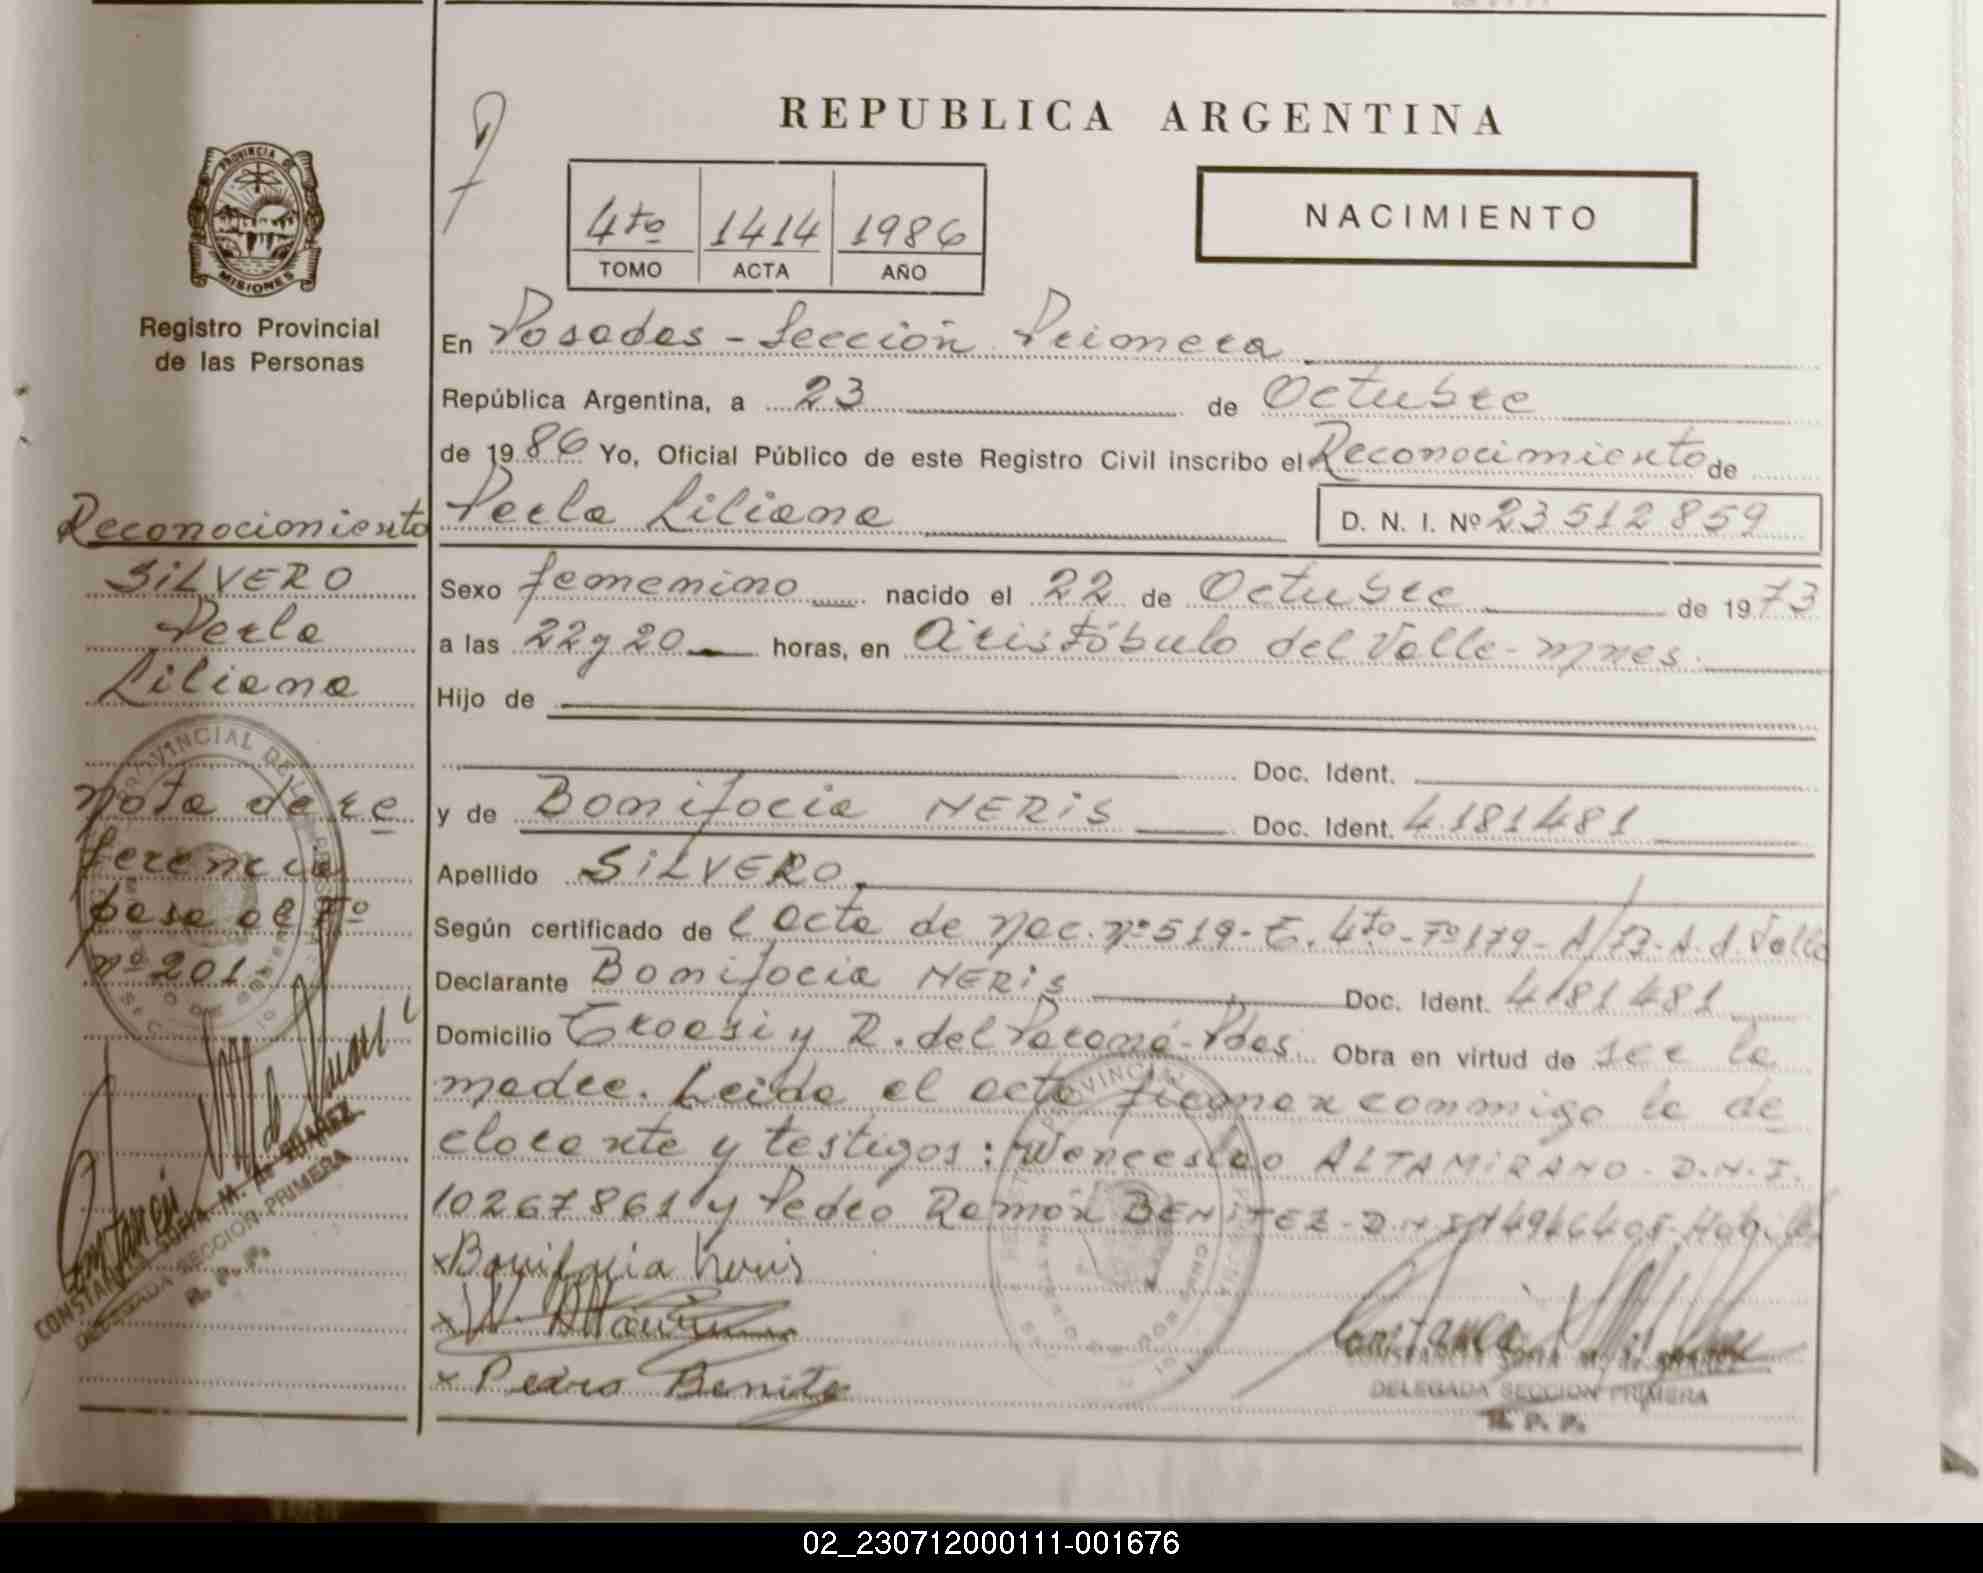 REPUBLICA ARGENTINA
PROVINCIA DE
MISIONES
Registro Provincial
de las Personas
4to 1414 1986
TOMO ACTA AÑO
NACIMIENTO
En Posadas - Sección Primera
República Argentina, a 23 de Octubre
de 1986 Yo, Oficial Público de este Registro Civil inscribo el Reconocimiento de
Perla Liliana D. N. I. Nº 23512859
Sexo femenino nacido el 22 de Octubre de 1973
a las 22 y 20 horas, en Aristóbulo del Valle - Mnes.
Hijo de
Doc. Ident.
y de Bonifacia NERIS Doc. Ident. 4181481
Apellido SILVERO
Según certificado de l acta de Nac. nº 519 - T. 4to - Fº 179 - A/73 - A. d. Valle
Declarante Bonifacia NERIS Doc. Ident. 4181481
Domicilio y R. del Paraná - Pdas. Obra en virtud de ser la
madre. Leida el acta firman conmigo la de
clarante y testigos: Wenceslao ALTAMIRANO - D.N.I.
10267861 y Pedro Ramón BENITEZ - D.N.I.
x Bonifacia Neris
x
x Pedro Benite
CONSTANCIA SOFIA M. de SUAREZ
DELEGADA SECCION PRIMERA
R. P. P.
Reconocimiento
SILVERO
Perla
Liliana
Nota de re
ferencia
pasa al Fº
nº 201
CONSTANCIA SOFIA M. de SUAREZ
DELEGADA SECCION PRIMERA
R. P. P.
02_230712000111-001676